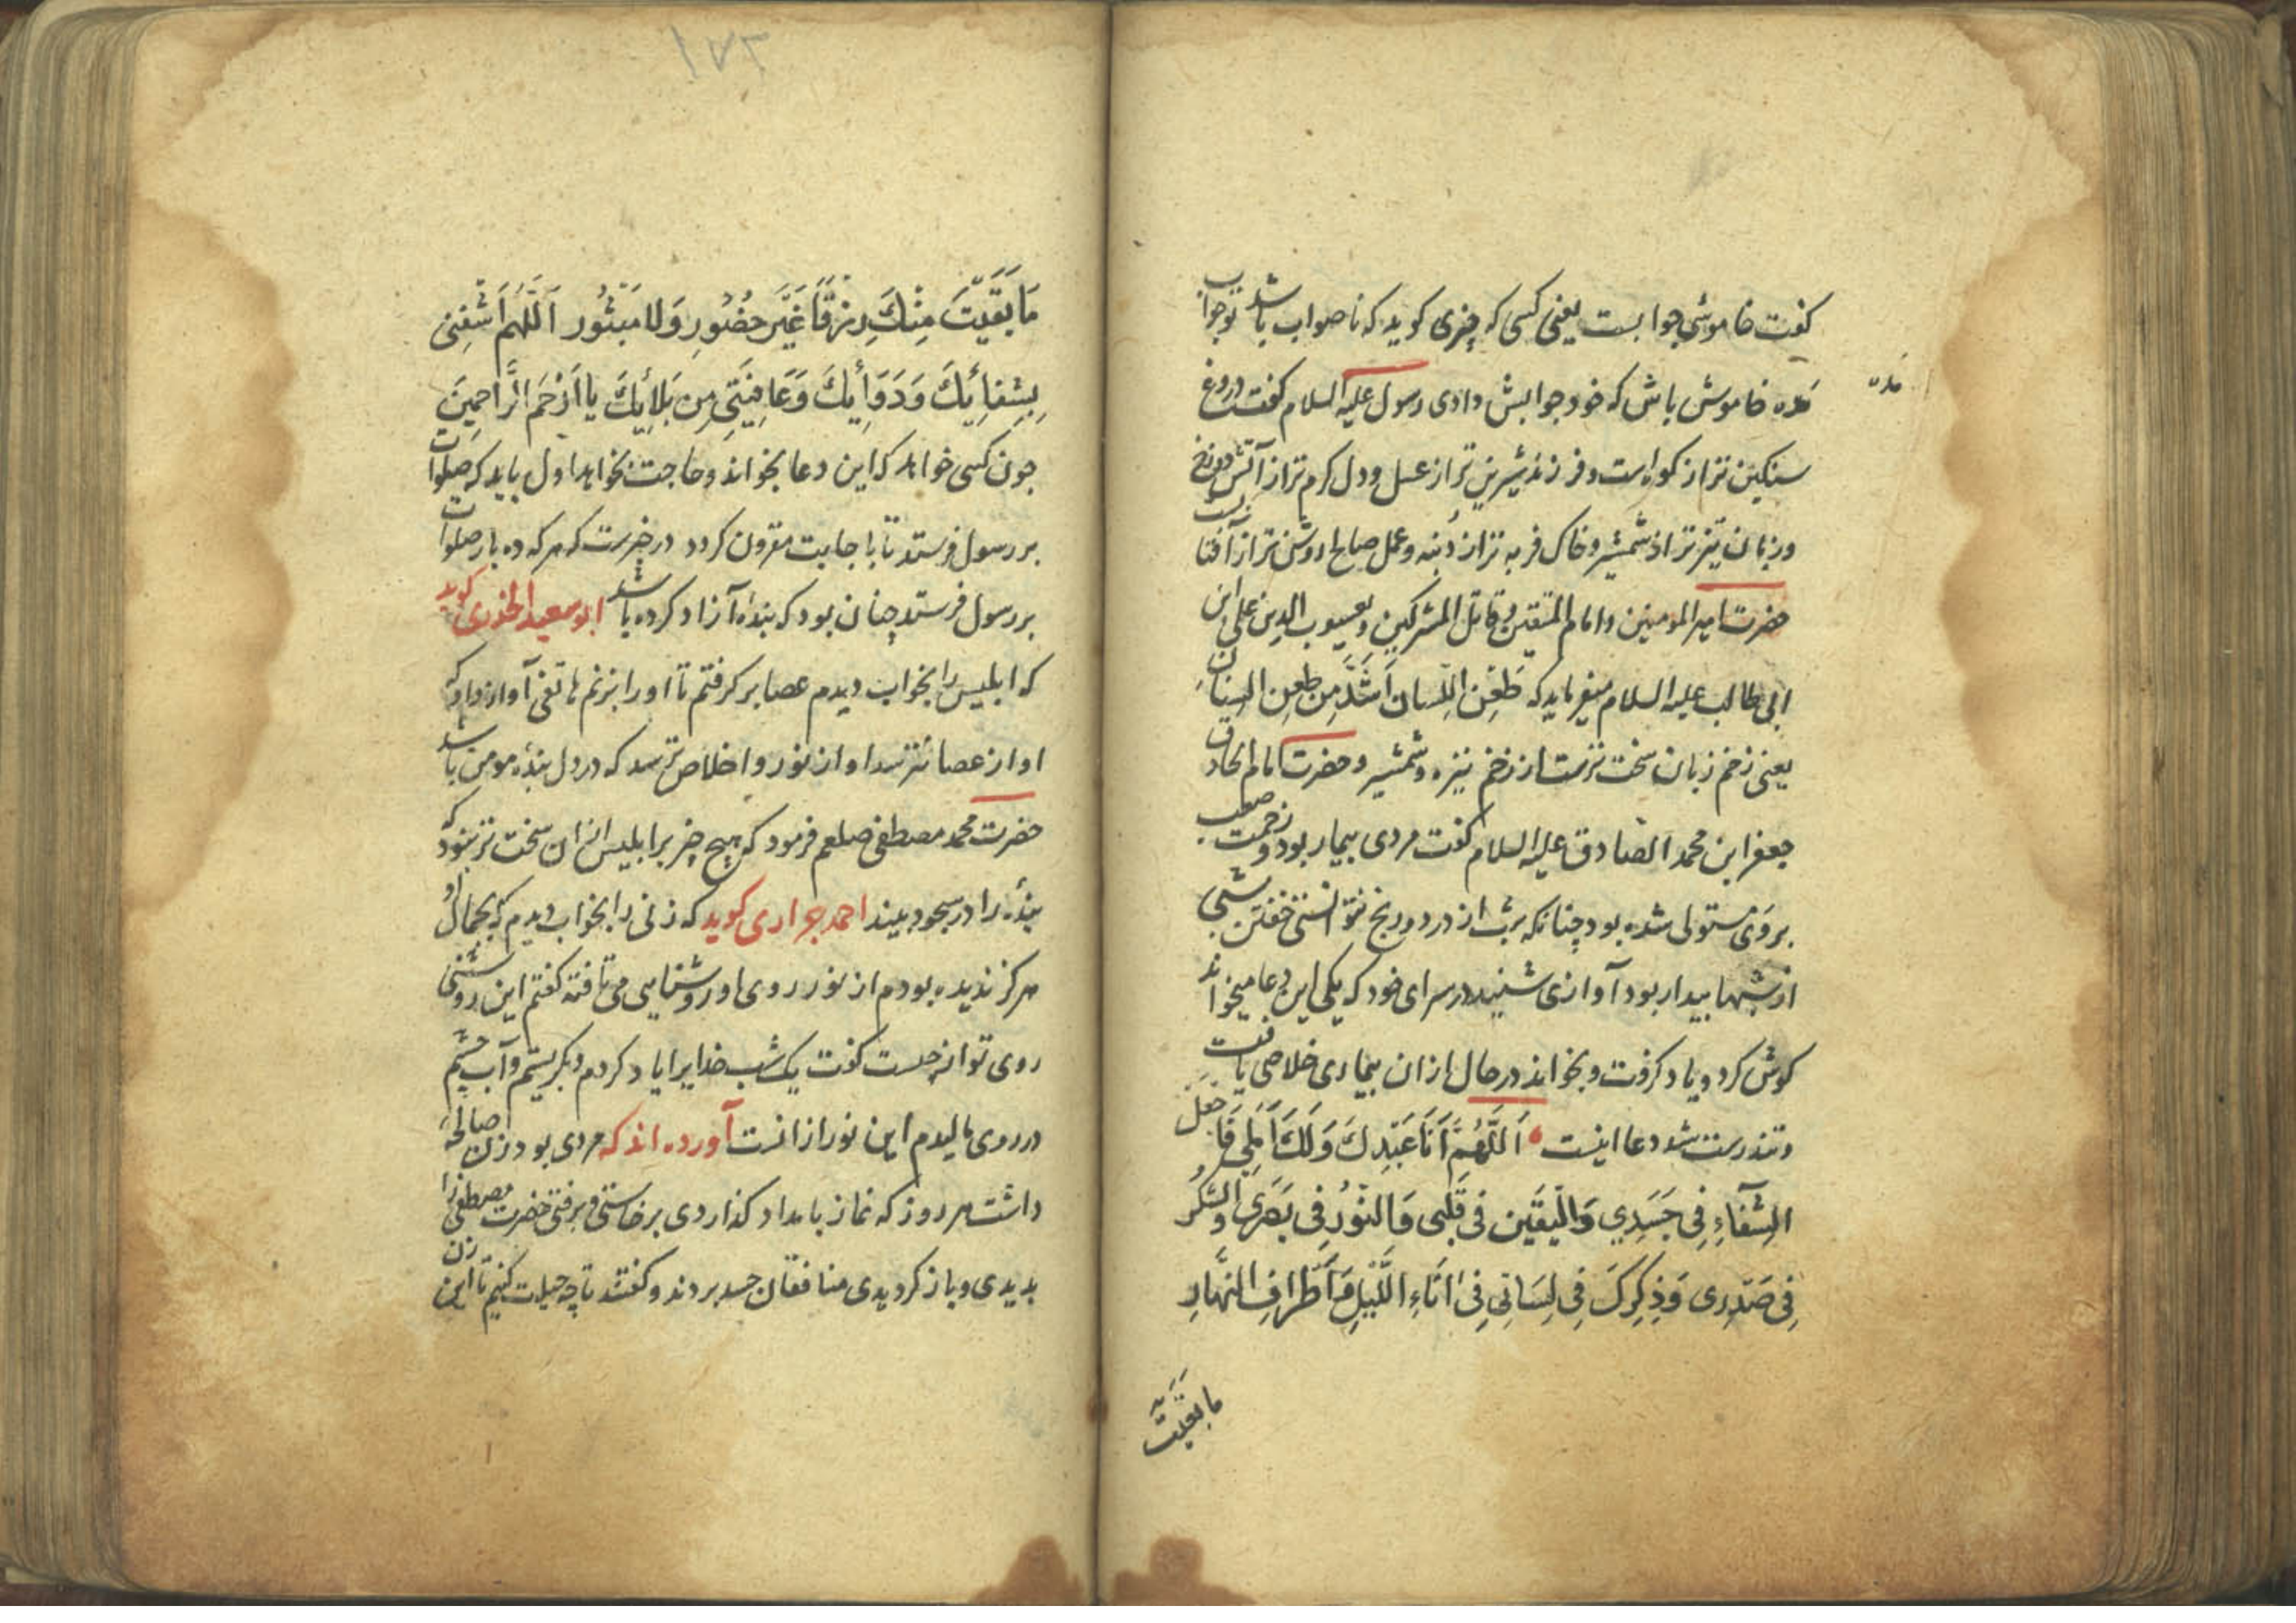 کفت خاموشی جوابست یعنی کسی که چیزی کوید که ناصواب باشد تو جواب
مده خاموش باش که خود جوابش دادی رسول علیه السلام کفت دروغ
مده
سنکین تر از کوه است و فرزند شیرین تر از عسل و دل کرم تر از آتش دوزخ
و زبان تیزتر از شمشیر و خاک فربه تر از دنبه و عمل صالح روشن تر از آفتابست
حضرت امیر المومنین و امام المتقین و قاتل المشرکین و یعسوب الدین علی ابن
ابی طالب علیه السلام میفرماید که طَعْن اللِّسان اَشَدَّ مِن طعنِ السِنانِ
یعنی زخم زبان سخت ترست از زخم نیزه و شمشیر و حضرت امام
جعفر ابن محمد الصادق علیه السلام کفت مردی بیمار بود و زحمت صعب
بر وی مستولی شده بود چنانکه بر شب از درد و رنج نتوانستی خفتن شبی
از شبها بیدار بود آوازی شنید در سرای خود که یکی این دعا میخواند
کوش کرد و یاد کرفت و بخواند در حال از آن بیماری خلاصی یافت
و تندرست شد و دعا اینست اَللّهُمَّ اَنَا عَبْدِكَ وَلَكَ اَمَلِي فَاجْعَل
الشِفَآءِ فِي جَسَدِي وَالْيَقَين فی قَلبی وَالنّورُ فِی بَصَری وَالشُكْر
فِی صَدْرِی وَذِكِركَ فِی لِسَانِی فِی اٰنَاءِ اللَّيْلِ وَاَطْرافِ النَّهارِ
مابقیت
۱۷۲
مَا بَقَيْتَ مِنْكَ رِزْقًا غَيْر حضُورِ وَلا مَبْثُور اَللَّهُم اَشْفِنِی
بِشِفائِیكَ وَدَوَایِكَ وَعَافِيَتِی مِن بَلائِیكَ يا اَرْحَمَ الرَّاحِمِينَ
چون کسی خواهد که این دعا بخواند و حاجت بخواهد اول باید که صلوات
بر رسول فرستد تا با جابت مقرون کردد در خبرست که هر که ده بار صلوات
بر رسول فرستد چنان بود که بندهٔ آزاد کرده باشد ابو سعید الخدری کوید
که ابلیس را بخواب دیدم عصا بر کرفتم تا او را بزنم هاتفی آواز داد که
او از عصا نترسد او از نور و اخلاص ترسد که در دل بندهٔ مومن باشد
حضرت محمد مصطفی صلعم فرمود که هیچ چیز بر ابلیس از ان سخت تر نبود که
بندهٔ را در سجود بیند احمد حواری کوید که زنی را بخواب دیدم که بجمال او
هرکز ندیده بودم از نور روی او روشنایی می تافت کفتم این روشنی
روی تو از چیست کفت یک شب خدایرا یاد کردم و بکریستم و آب چشم
در روی مالیدم این نور از انست آورده اند که مردی بود زن صالحه
داشت هر روز که نماز بامداد کذاردی برخاستی و برفتی حضرت مصطفی را
بدیدی و باز کردیدی منافقان حسد بردند و کفتند تا چه حیلت کنیم تا این زن